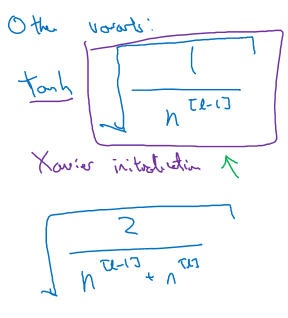 Other variants:
tanh √(1/n^[l-1])
Xavier initialization ↑
√(2/(n^[l-1] + n^[l]))